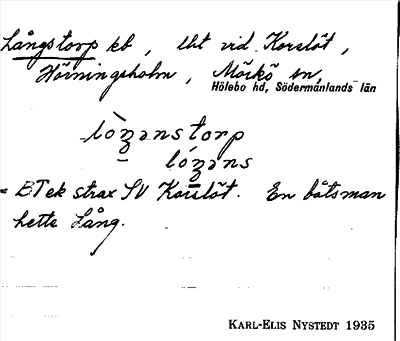 Långstorp kb, lht vid Korslöt,
Hörningsholm, Mörkö sn,
Hölebo hd, Södermanlands län
lòzanstorp
lózans
= BTek strax SV Korslöt. En båtsman
hette Lång.
KARL-ELIS NYSTEDT 1935